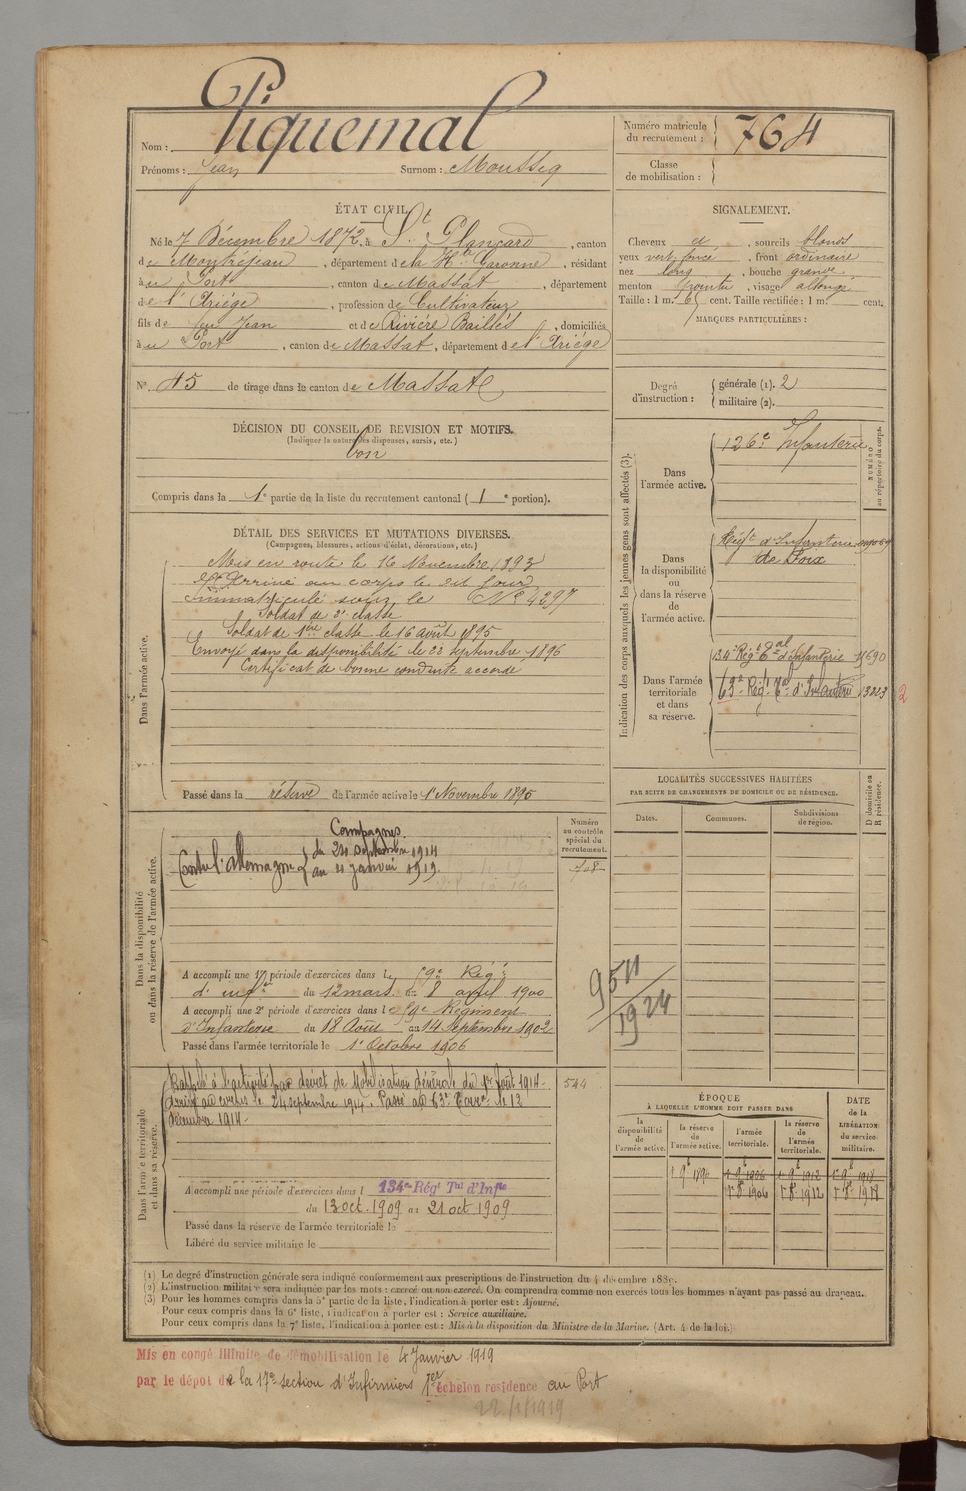 Nom : Piquemal
Prénoms : Jean Surnom : Mousseq
Numéro matricule du recrutement : 764
Classe de mobilisation :
ÉTAT CIVIL.
Né le 7 Décembre 1872, à St. Plancard, canton
de Montréjeau, département de la Hte Garonne, résidant
à au Port, canton de Massat, département
de l'Ariège, profession de Cultivateur
fils de feu Jean et de Rivière Baillés, domiciliés
à au Port, canton de Massat, département de l'Ariège
SIGNALEMENT.
Cheveux et, sourcils blonds
yeux vert foncé, front ordinaire
nez long, bouche grande
menton pointu, visage allongé
Taille : 1 m. 65 cent. Taille rectifiée : 1 m. cent.
MARQUES PARTICULIÈRES :
N° 45 de tirage dans le canton de Massat
Degré d'instruction : générale (1). 2
militaire (2).
DÉCISION DU CONSEIL DE REVISION ET MOTIFS.
(Indiquer la nature des dispenses, sursis, etc.)
bon
Compris dans la 1e partie de la liste du recrutement cantonal (1e portion).
DÉTAIL DES SERVICES ET MUTATIONS DIVERSES.
(Campagnes, blessures, actions d'éclat, décorations, etc.)
Dans l'armée active.
Mis en route le 16 Novembre 1893
Et Arrivé au corps le dit jour
Immatriculé sous le N° 4897
Soldat de 2e classe
Soldat de 1ère classe le 16 août 1895
Envoyé dans la disponibilité le 22 septembre 1896
Certificat de bonne conduite accordé
Passé dans la réserve de l'armée active le 1r Novembre 1896
Indication des corps auxquels les jeunes gens sont affectés (3).
NUMÉRO au répertoire du corps.
Dans l'armée active.
126e Infanterie
Dans la disponibilité ou dans la réserve de l'armée active.
Régt d'Infanterie
de Foix
Dans l'armée territoriale et dans sa réserve.
134e Régt Tal d'Infanterie 15690
63e Régt Tal d'Infanterie 13223
2
LOCALITÉS SUCCESSIVES HABITÉES
PAR SUITE DE CHANGEMENTS DE DOMICILE OU DE RÉSIDENCE.
Dates. Communes. Subdivisions de région. D domicile ou R résidence.
Dans la disponibilité ou dans la réserve de l'armée active.
Numéro au contrôle spécial du recrutement.
748
Campagnes.
Contre l'Allemagne { du 24 septembre 1914
au 4 janvier 1919.
951
1924
A accompli une 1re période d'exercices dans le 59e Régt
d'infie du 12 mars au 8 avril 1900
A accompli une 2e période d'exercices dans le 59e Régiment
d'Infanterie du 18 Août au 14 Septembre 1902
Passé dans l'armée territoriale le 1r Octobre 1906
Dans l'armée territoriale et dans sa réserve.
544
Rappelé à l'activité par décret de Mobilisation Générale du 1er Août 1914.
Arrivé au corps le 24 septembre 1914. Passé au 63e Terral le 12
décembre 1914.
A accompli une période d'exercices dans l 134me Régt Tal d'Infie
du 13 oct. 1909 au 21 oct 1909
Passé dans la réserve de l'armée territoriale le
Libéré du service militaire le
ÉPOQUE
À LAQUELLE L'HOMME DOIT PASSER DANS
la disponibilité de l'armée active. la réserve de l'armée active. l'armée territoriale. la réserve de l'armée territoriale.
DATE de la LIBÉRATION du service militaire.
1r 9e 1896 1r 9e 1906 1r 9e 1912 1r 9e 1918
1r 8e 1906 1r 8e 1912 1r 8e 1918
(1) Le degré d'instruction générale sera indiqué conformément aux prescriptions de l'instruction du 4 décembre 1889.
(2) L'instruction militaire sera indiquée par les mots : exercé ou non exercé. On comprendra comme non exercés tous les hommes n'ayant pas passé au drapeau.
(3) Pour les hommes compris dans la 5e partie de la liste, l'indication à porter est : Ajourné.
Pour ceux compris dans la 6e liste, l'indication à porter est : Service auxiliaire.
Pour ceux compris dans la 7e liste, l'indication à porter est : Mis à la disposition du Ministre de la Marine. (Art. 4 de la loi.)
Mis en congé illimité de démobilisation le 4 Janvier 1919
par le dépôt de la 17e section d'Infirmiers 1er échelon résidence au Port
22/1/1919